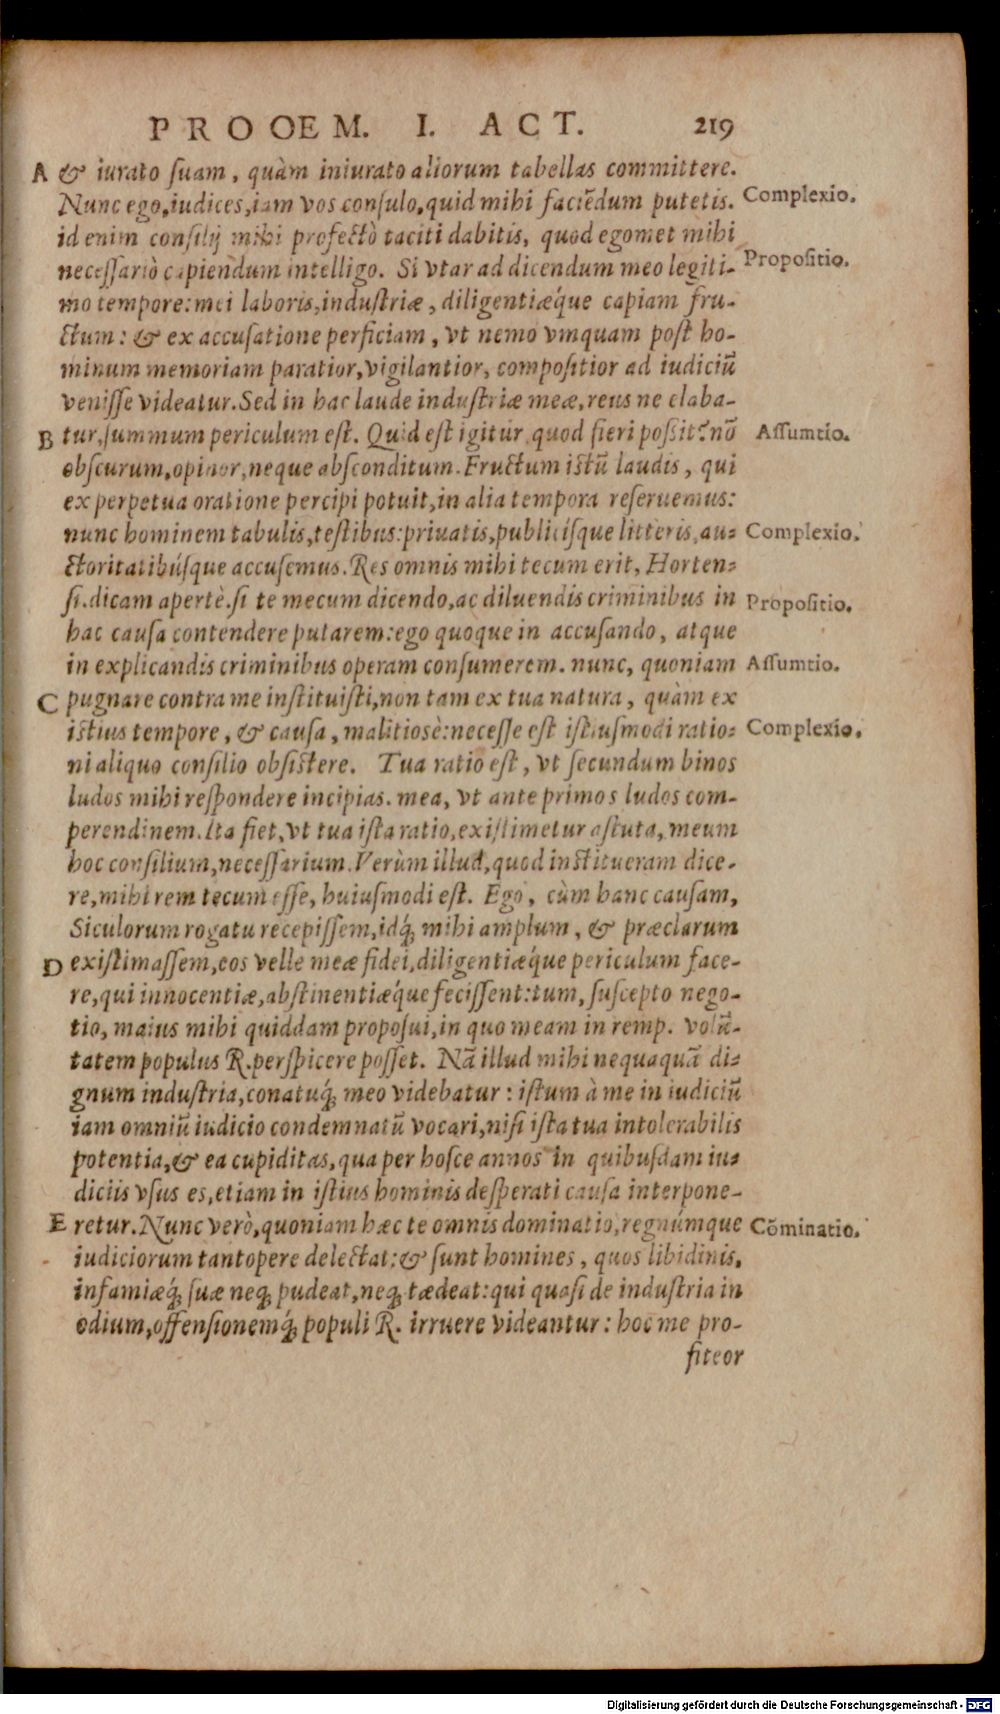 PROOEM. I. ACT. 219
A & iurato suam, quàm iniurato aliorum tabellas committere.
Nunc ego, iudices, iam vos consulo, quid mihi faciēdum putetis. Complexio.
id enim consilij mihi profectò taciti dabitis, quod egomet mihi
necessariò capiendum intelligo. Si vtar ad dicendum meo legiti- Propositio.
mo tempore: mei laboris, industriæ, diligentiǽque capiam fru-
ctum: & ex accusatione perficiam, vt nemo vmquam post ho-
minum memoriam paratior, vigilantior, compositior ad iudiciū
venisse videatur. Sed in hac laude industriæ meæ, reus ne elaba-
B tur, summum periculum est. Quid est igitur quod fieri possit? nō Assumtio.
obscurum, opinor, neque absconditum. Fructum istū laudis, qui
ex perpetua oratione percipi potuit, in alia tempora reseruemus:
nunc hominem tabulis, testibus: priuatis, publicísque litteris, au- Complexio.
ctoritatibúsque accusemus. Res omnis mihi tecum erit, Horten-
si. dicam apertè. si te mecum dicendo, ac diluendis criminibus in Propositio.
hac causa contendere putarem: ego quoque in accusando, atque
in explicandis criminibus operam consumerem. nunc, quoniam Assumtio.
C pugnare contra me instituisti, non tam ex tua natura, quàm ex
istius tempore, & causa, malitiosè: necesse est istiusmodi ratio- Complexio.
ni aliquo consilio obsistere. Tua ratio est, vt secundum binos
ludos mihi respondere incipias. mea, vt ante primos ludos com-
perendinem. Ita fiet, vt tua ista ratio, existimetur astuta, meum
hoc consilium, necessarium. Verùm illud, quod institueram dice-
re, mihi rem tecum esse, huiusmodi est. Ego, cùm hanc causam,
Siculorum rogatu recepissem, idq́; mihi amplum, & præclarum
D existimassem, eos velle meæ fidei, diligentiǽque periculum face-
re, qui innocentiæ, abstinentiǽque fecissent: tum, suscepto nego-
tio, maius mihi quiddam proposui, in quo meam in remp. volū-
tatem populus R. perspicere posset. Nā illud mihi nequaquā di-
gnum industria, conatuq́; meo videbatur: istum à me in iudiciū
iam omniū iudicio condemnatū vocari, nisi ista tua intolerabilis
potentia, & ea cupiditas, qua per hosce annos in quibusdam iu-
diciis vsus es, etiam in istius hominis desperati causa interpone-
E retur. Nunc verò, quoniam hæc te omnis dominatio, regnúmque Cōminatio.
iudiciorum tantopere delectat: & sunt homines, quos libidinis,
infamiæq́; suæ neq; pudeat, neq; tædeat: qui quasi de industria in
odium, offensionemq́; populi R. irruere videantur: hoc me pro-
fiteor
Digitalisierung gefördert durch die Deutsche Forschungsgemeinschaft - DFG